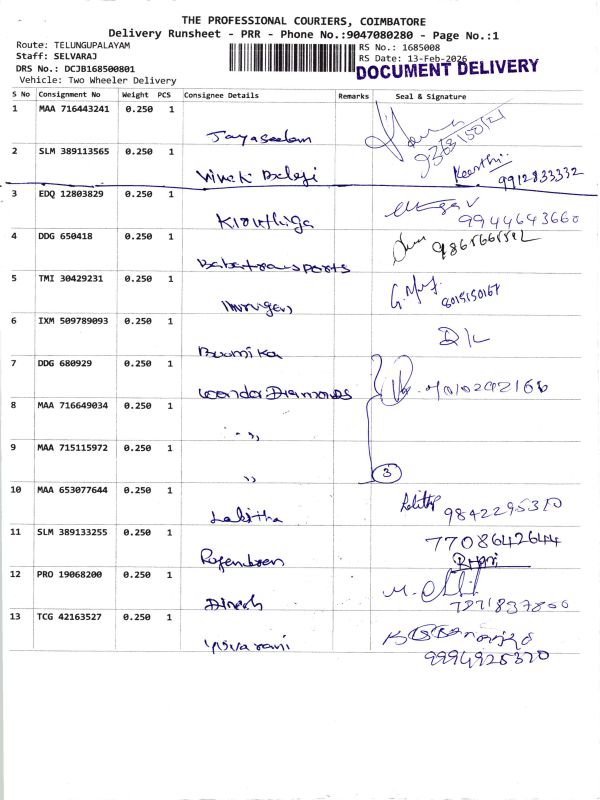 THE PROFESSIONAL COURIERS, COIMBATORE
Delivery Runsheet - PRR - Phone No.:9047080280 - Page No.:1
Route: TELUNGUPALAYAM
RS No.: 1685008
Staff: SELVARAJ
RS Date: 13-Feb-2026
DRS No.: DCJB168500801
DOCUMENT DELIVERY
Vehicle: Two Wheeler Delivery
S No Consignment No Weight PCS Consignee Details Remarks Seal & Signature
1 MAA 716443241 0.250 1
Jayaseelan
2 SLM 389113565 0.250 1
Vivek Balaji Keerthi. 9912833332
3 EDQ 12803829 0.250 1
Kiruthiga 9944643660
4 DDG 650418 0.250 1
Babatransports
5 TMI 30429231 0.250 1
Murugan 8015150167
6 IXM 509789093 0.250 1
Boomika D/L
7 DDG 680929 0.250 1
Wonder Diamonds
8 MAA 716649034 0.250 1
- ,,
9 MAA 715115972 0.250 1
,, 3
10 MAA 653077644 0.250 1
Lalitha 9842295310
11 SLM 389133255 0.250 1
Rajendran 7708642644
12 PRO 19068200 0.250 1
Dinesh
13 TCG 42163527 0.250 1
Yisvarani 9994925370